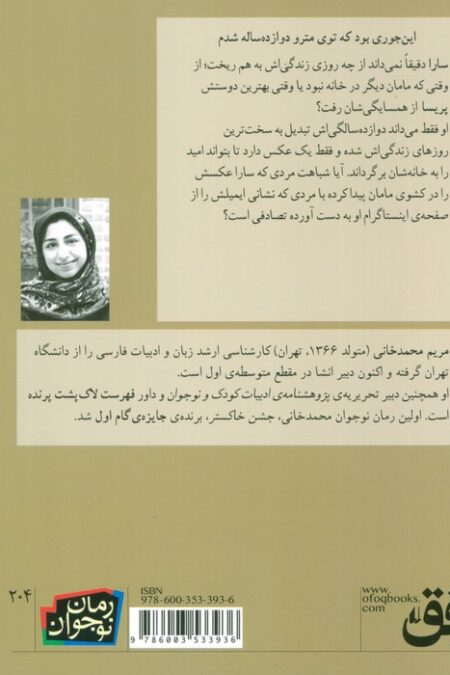 این‌جوری بود که توی مترو دوازده‌ساله شدم
سارا دقیقاً نمی‌داند از چه روزی زندگی‌اش به هم ریخت؛ از
وقتی که مامان دیگر در خانه نبود یا وقتی بهترین دوستش
پریسا از همسایگی‌شان رفت؟
او فقط می‌داند دوازده‌سالگی‌اش تبدیل به سخت‌ترین
روزهای زندگی‌اش شده و فقط یک عکس دارد تا بتواند امید
را به خانه‌شان برگرداند. آیا شباهت مردی که سارا عکسش
را در کشوی مامان پیدا کرده با مردی که نشانی ایمیلش را از
صفحه‌ی اینستاگرام او به دست آورده تصادفی است؟
مریم محمدخانی (متولد ۱۳۶۶، تهران) کارشناسی ارشد زبان و ادبیات فارسی را از دانشگاه
تهران گرفته و اکنون دبیر انشا در مقطع متوسطه‌ی اول است.
او همچنین دبیر تحریریه‌ی پژوهشنامه‌ی ادبیات کودک و نوجوان و داور فهرست لاک‌پشت پرنده
است. اولین رمان نوجوان محمدخانی، جشن خاکستر، برنده‌ی جایزه‌ی گام اول شد.
۲۰۴
رمان
نوجوان
ISBN
978-600-353-393-6
9 786003 533936
www.
ofoqbooks.
com
افق